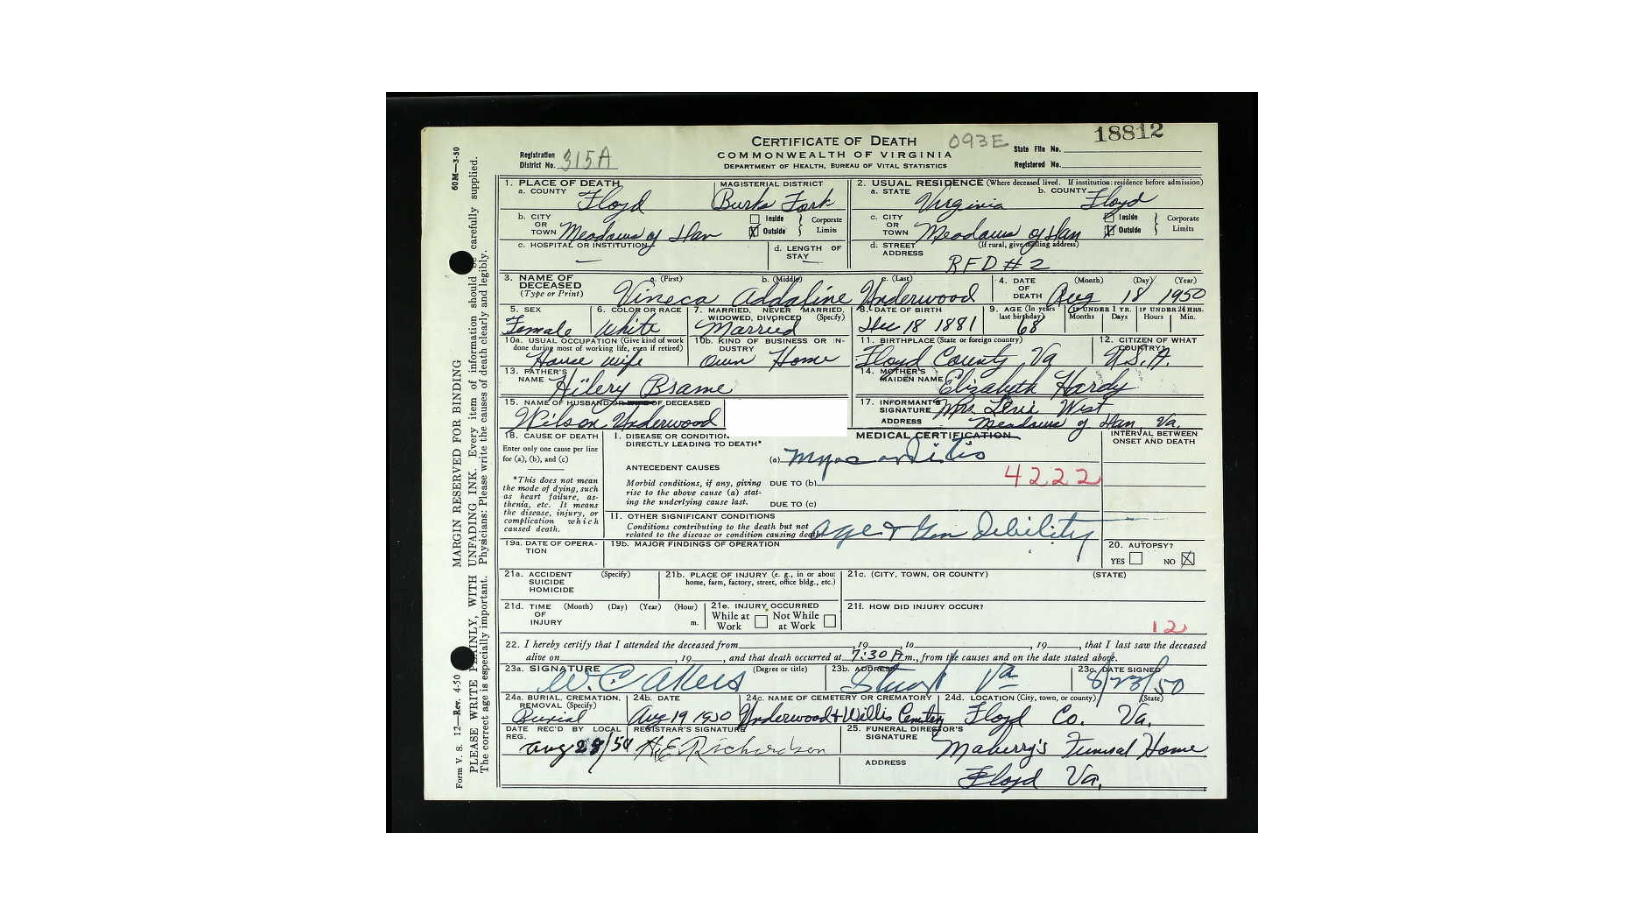 CERTIFICATE OF DEATH 093E 18812
COMMONWEALTH OF VIRGINIA
DEPARTMENT OF HEALTH, BUREAU OF VITAL STATISTICS
Registration District No. 315A
State File No.
Registered No.
1. PLACE OF DEATH
a. COUNTY Floyd
MAGISTERIAL DISTRICT Burks Fork
b. CITY OR TOWN Meadows of Dan
Inside Outside Corporate Limits
c. HOSPITAL OR INSTITUTION
d. LENGTH OF STAY
2. USUAL RESIDENCE (Where deceased lived. If institution: residence before admission)
a. STATE Virginia
b. COUNTY Floyd
c. CITY OR TOWN Meadows of Dan
Inside Outside Corporate Limits
d. STREET ADDRESS (If rural, give mailing address)
RFD #2
3. NAME OF DECEASED (Type or Print)
a. (First) b. (Middle) c. (Last)
Vineca Addaline Underwood
4. DATE OF DEATH (Month) (Day) (Year)
Aug 18 1950
5. SEX Female
6. COLOR OR RACE White
7. MARRIED, NEVER MARRIED, WIDOWED, DIVORCED (Specify) Married
8. DATE OF BIRTH Dec 18 1881
9. AGE (In years last birthday) 68
IF UNDER 1 YR. Months Days
IF UNDER 24 HRS. Hours Min.
10a. USUAL OCCUPATION (Give kind of work done during most of working life, even if retired)
House wife
10b. KIND OF BUSINESS OR INDUSTRY
Own Home
11. BIRTHPLACE (State or foreign country)
Floyd County, Va
12. CITIZEN OF WHAT COUNTRY?
U.S.A.
13. FATHER'S NAME Hilery Brame
14. MOTHER'S MAIDEN NAME Elizabeth Hardy
15. NAME OF HUSBAND OR WIFE OF DECEASED
Wilson Underwood
17. INFORMANT'S SIGNATURE Mrs. West
ADDRESS Meadows of Dan, Va.
18. CAUSE OF DEATH
Enter only one cause per line for (a), (b), and (c)
*This does not mean the mode of dying, such as heart failure, asthenia, etc. It means the disease, injury, or complication which caused death.
MEDICAL CERTIFICATION
INTERVAL BETWEEN ONSET AND DEATH
I. DISEASE OR CONDITION DIRECTLY LEADING TO DEATH*
(a) Myocarditis
4222
ANTECEDENT CAUSES
Morbid conditions, if any, giving rise to the above cause (a) stating the underlying cause last.
DUE TO (b)
DUE TO (c)
II. OTHER SIGNIFICANT CONDITIONS
Conditions contributing to the death but not related to the disease or condition causing death.
Age & Gen Debility
19a. DATE OF OPERATION
19b. MAJOR FINDINGS OF OPERATION
20. AUTOPSY?
YES NO
21a. ACCIDENT SUICIDE HOMICIDE (Specify)
21b. PLACE OF INJURY (e. g., in or about home, farm, factory, street, office bldg., etc.)
21c. (CITY, TOWN, OR COUNTY) (STATE)
21d. TIME OF INJURY (Month) (Day) (Year) (Hour) m.
21e. INJURY OCCURRED
While at Work Not While at Work
21f. HOW DID INJURY OCCUR?
12
22. I hereby certify that I attended the deceased from , 19 to , 19 , that I last saw the deceased
alive on , 19 , and that death occurred at 7:30 P m., from the causes and on the date stated above.
23a. SIGNATURE (Degree or title)
W.C. Akers
23b. ADDRESS
Stuart Va
23c. DATE SIGNED
8/23/50
24a. BURIAL, CREMATION, REMOVAL (Specify)
Burial
24b. DATE
Aug 19 1950
24c. NAME OF CEMETERY OR CREMATORY
Underwood & Willis Cemetery
24d. LOCATION (City, town, or county) (State)
Floyd Co. Va.
DATE REC'D BY LOCAL REG.
REGISTRAR'S SIGNATURE
H.E. Richardson
25. FUNERAL DIRECTOR'S SIGNATURE
Maberry's Funeral Home
ADDRESS
Floyd Va.
60M—3-50
MARGIN RESERVED FOR BINDING
PLEASE WRITE PLAINLY, WITH UNFADING INK. Every item of information should be carefully supplied.
The correct age is especially important. Physicians: Please write the causes of death clearly and legibly.
Form V. S. 12—Rev. 4-50